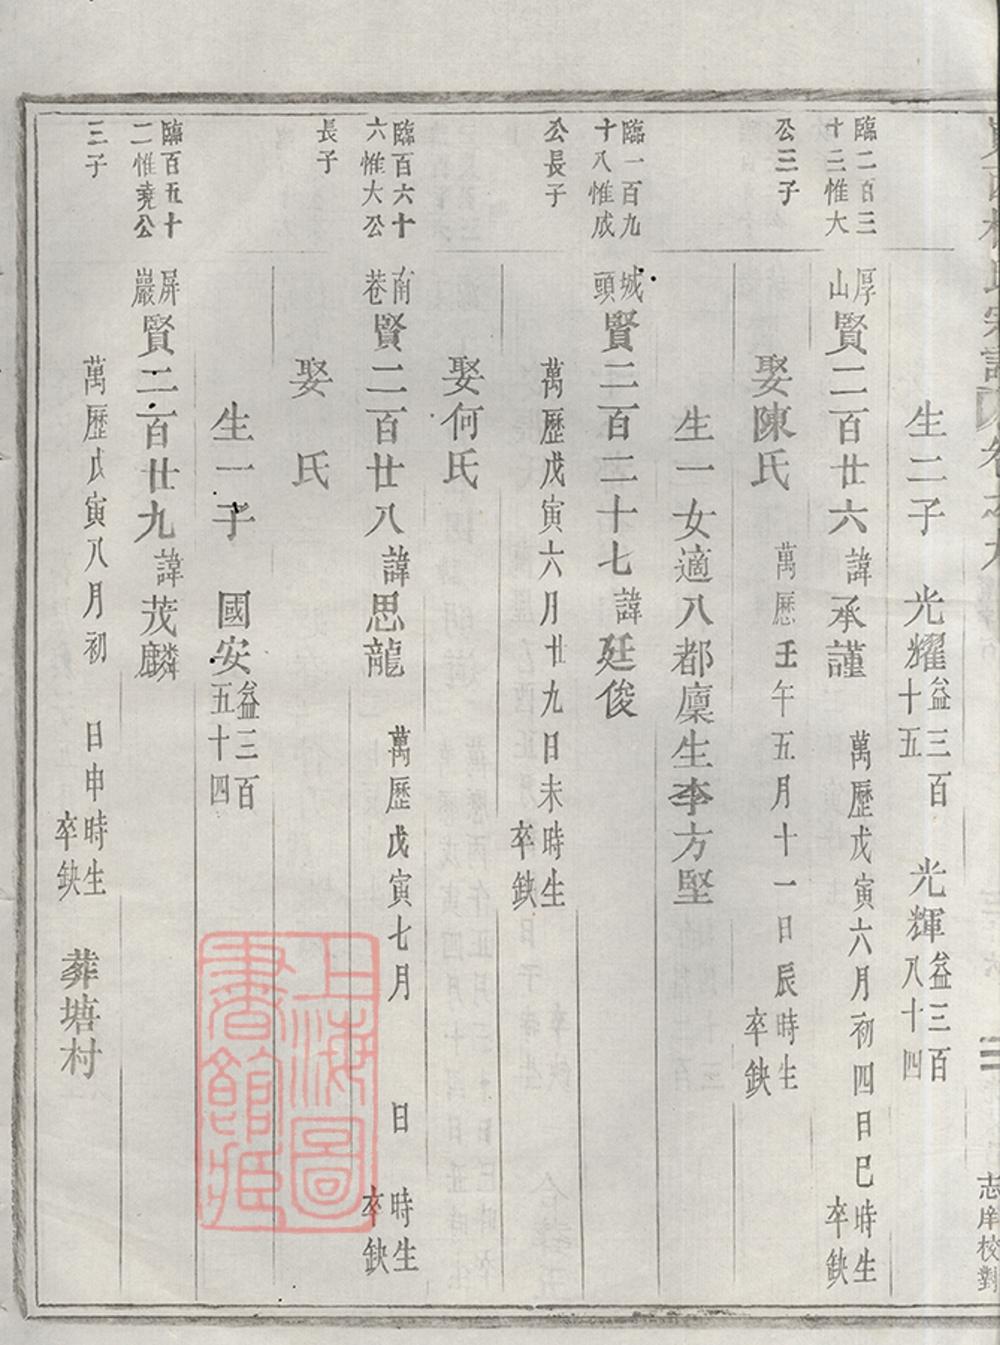 志庠校對
生二子 光耀益三百十五 光輝益三百八十四
臨二百三十二惟大公三子
厚山賢二百廿六諱承謹 萬歷戊寅六月初四日巳時生卒缺
娶陳氏 萬歷壬午五月十一日辰時生卒缺
生一女適八都廩生李方堅
臨一百九十八惟成公長子
城頭賢二百二十七諱廷俊
萬歷戊寅六月廿九日未時生卒缺
娶何氏
臨百六十六惟大公長子
南巷賢二百廿八諱思龍 萬歷戊寅七月 日 時生卒缺
娶 氏
生一子 國安益三百五十四
臨百五十二惟堯公三子
屏巖賢二百廿九諱茂麟
萬歷戊寅八月初 日申時生卒缺 葬塘村
上海圖書館藏